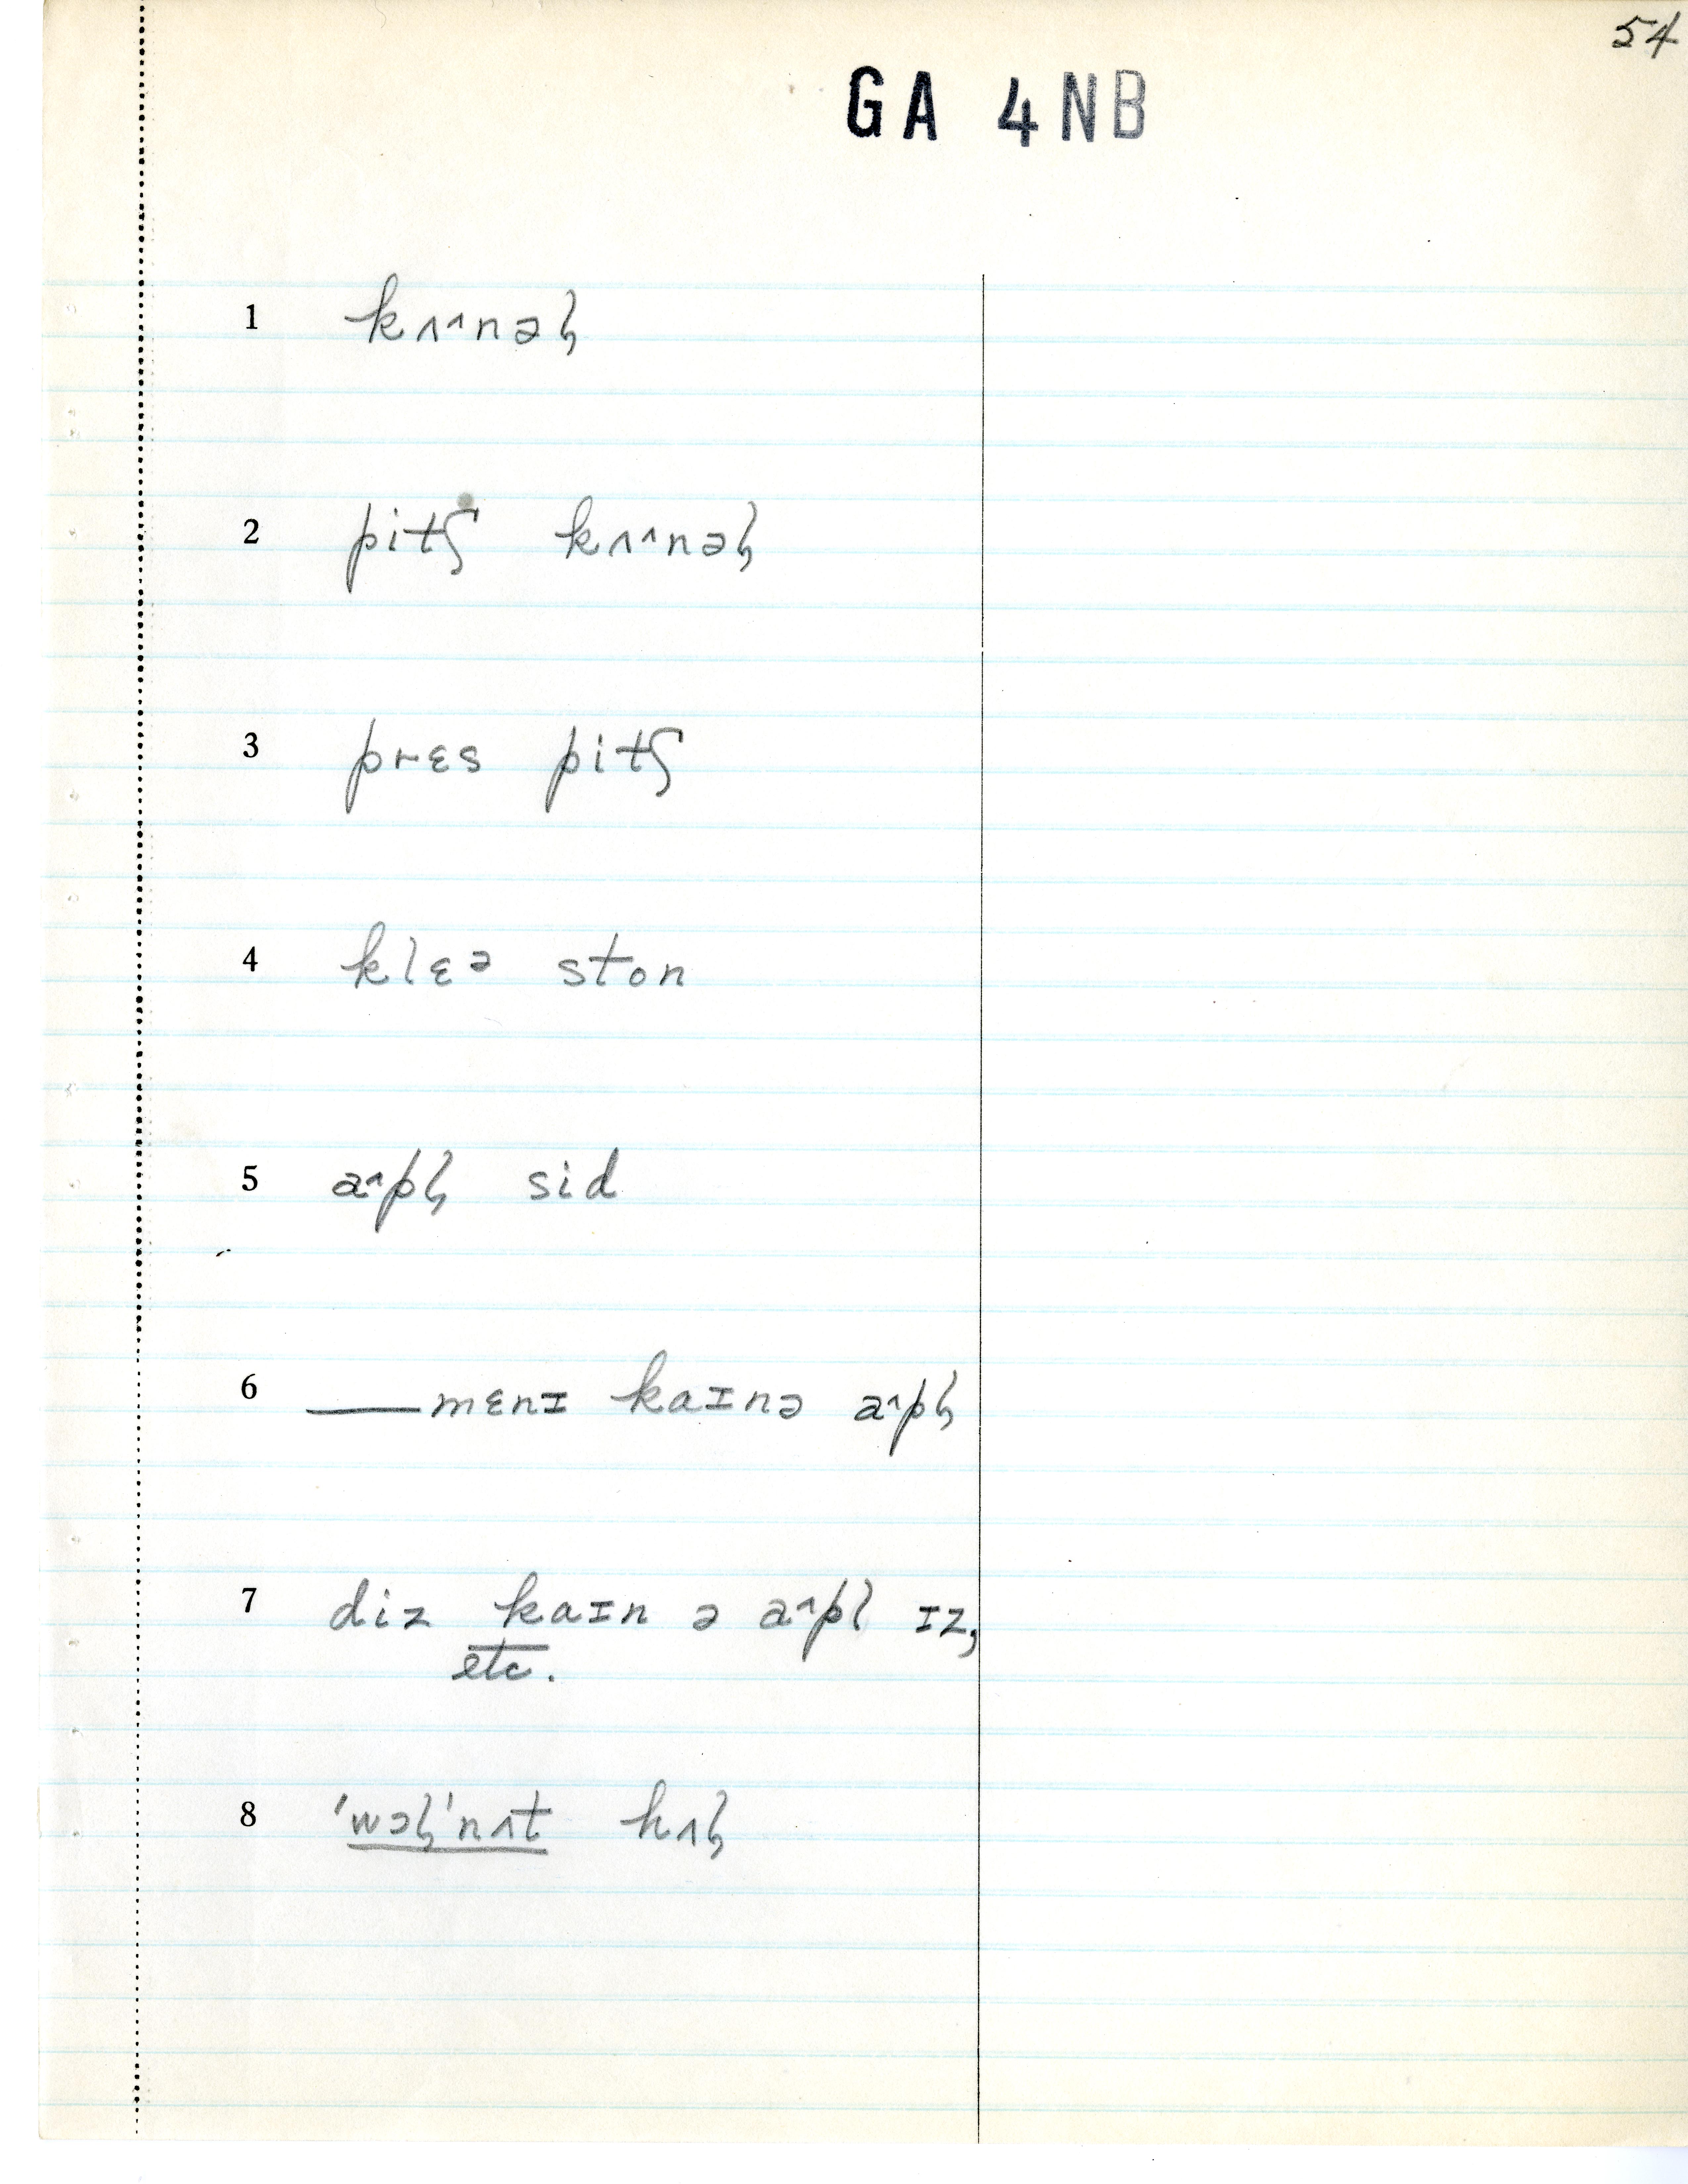 54
GA 4NB
1 kʌ˄nəl̥
2 pitʃ kʌ˄nəl̥
3 prɛs pitʃ
4 klɛᵊ ston
5 a˄pl̥ sid
6 —mɛnɪ kaɪnə a˄pl̥
7 diz kaɪn ə a˄pl ɪz,
etc.
8 'wɔl̥'nʌt hʌl̥